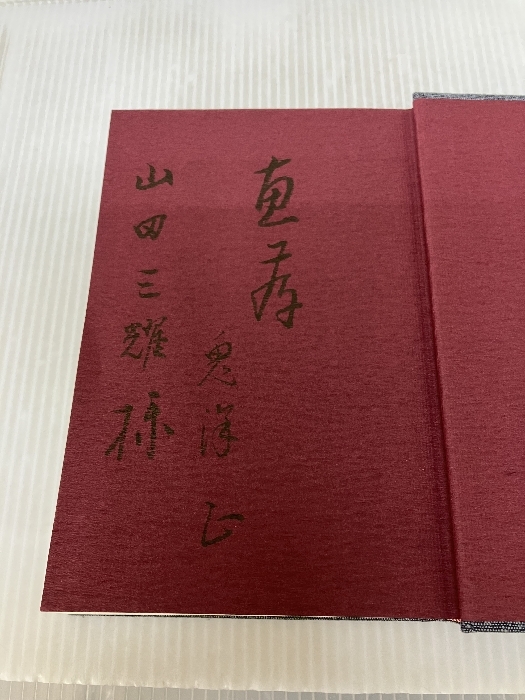 恵存
鬼澤 正
山田三耀様